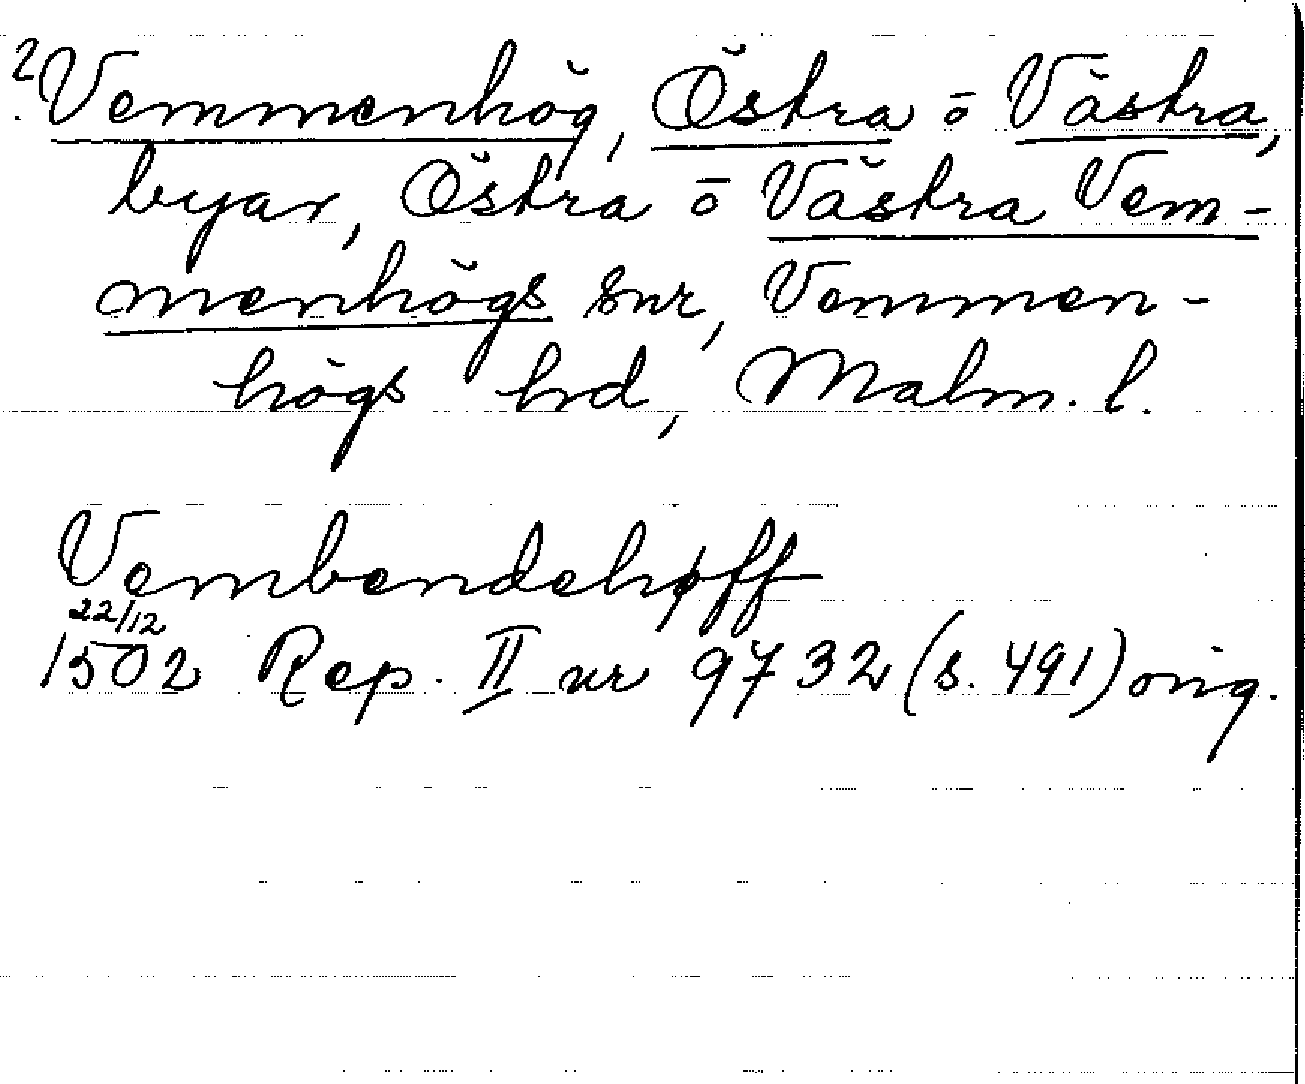 ? Vemmenhög, Östra o Västra,
byar, Östra o Västra Vem-
menhögs snr, Vemmen-
högs hd, Malm. l.
Vembendehøff
22/12
1502 Rep. II nr 9732 (s. 491) orig.